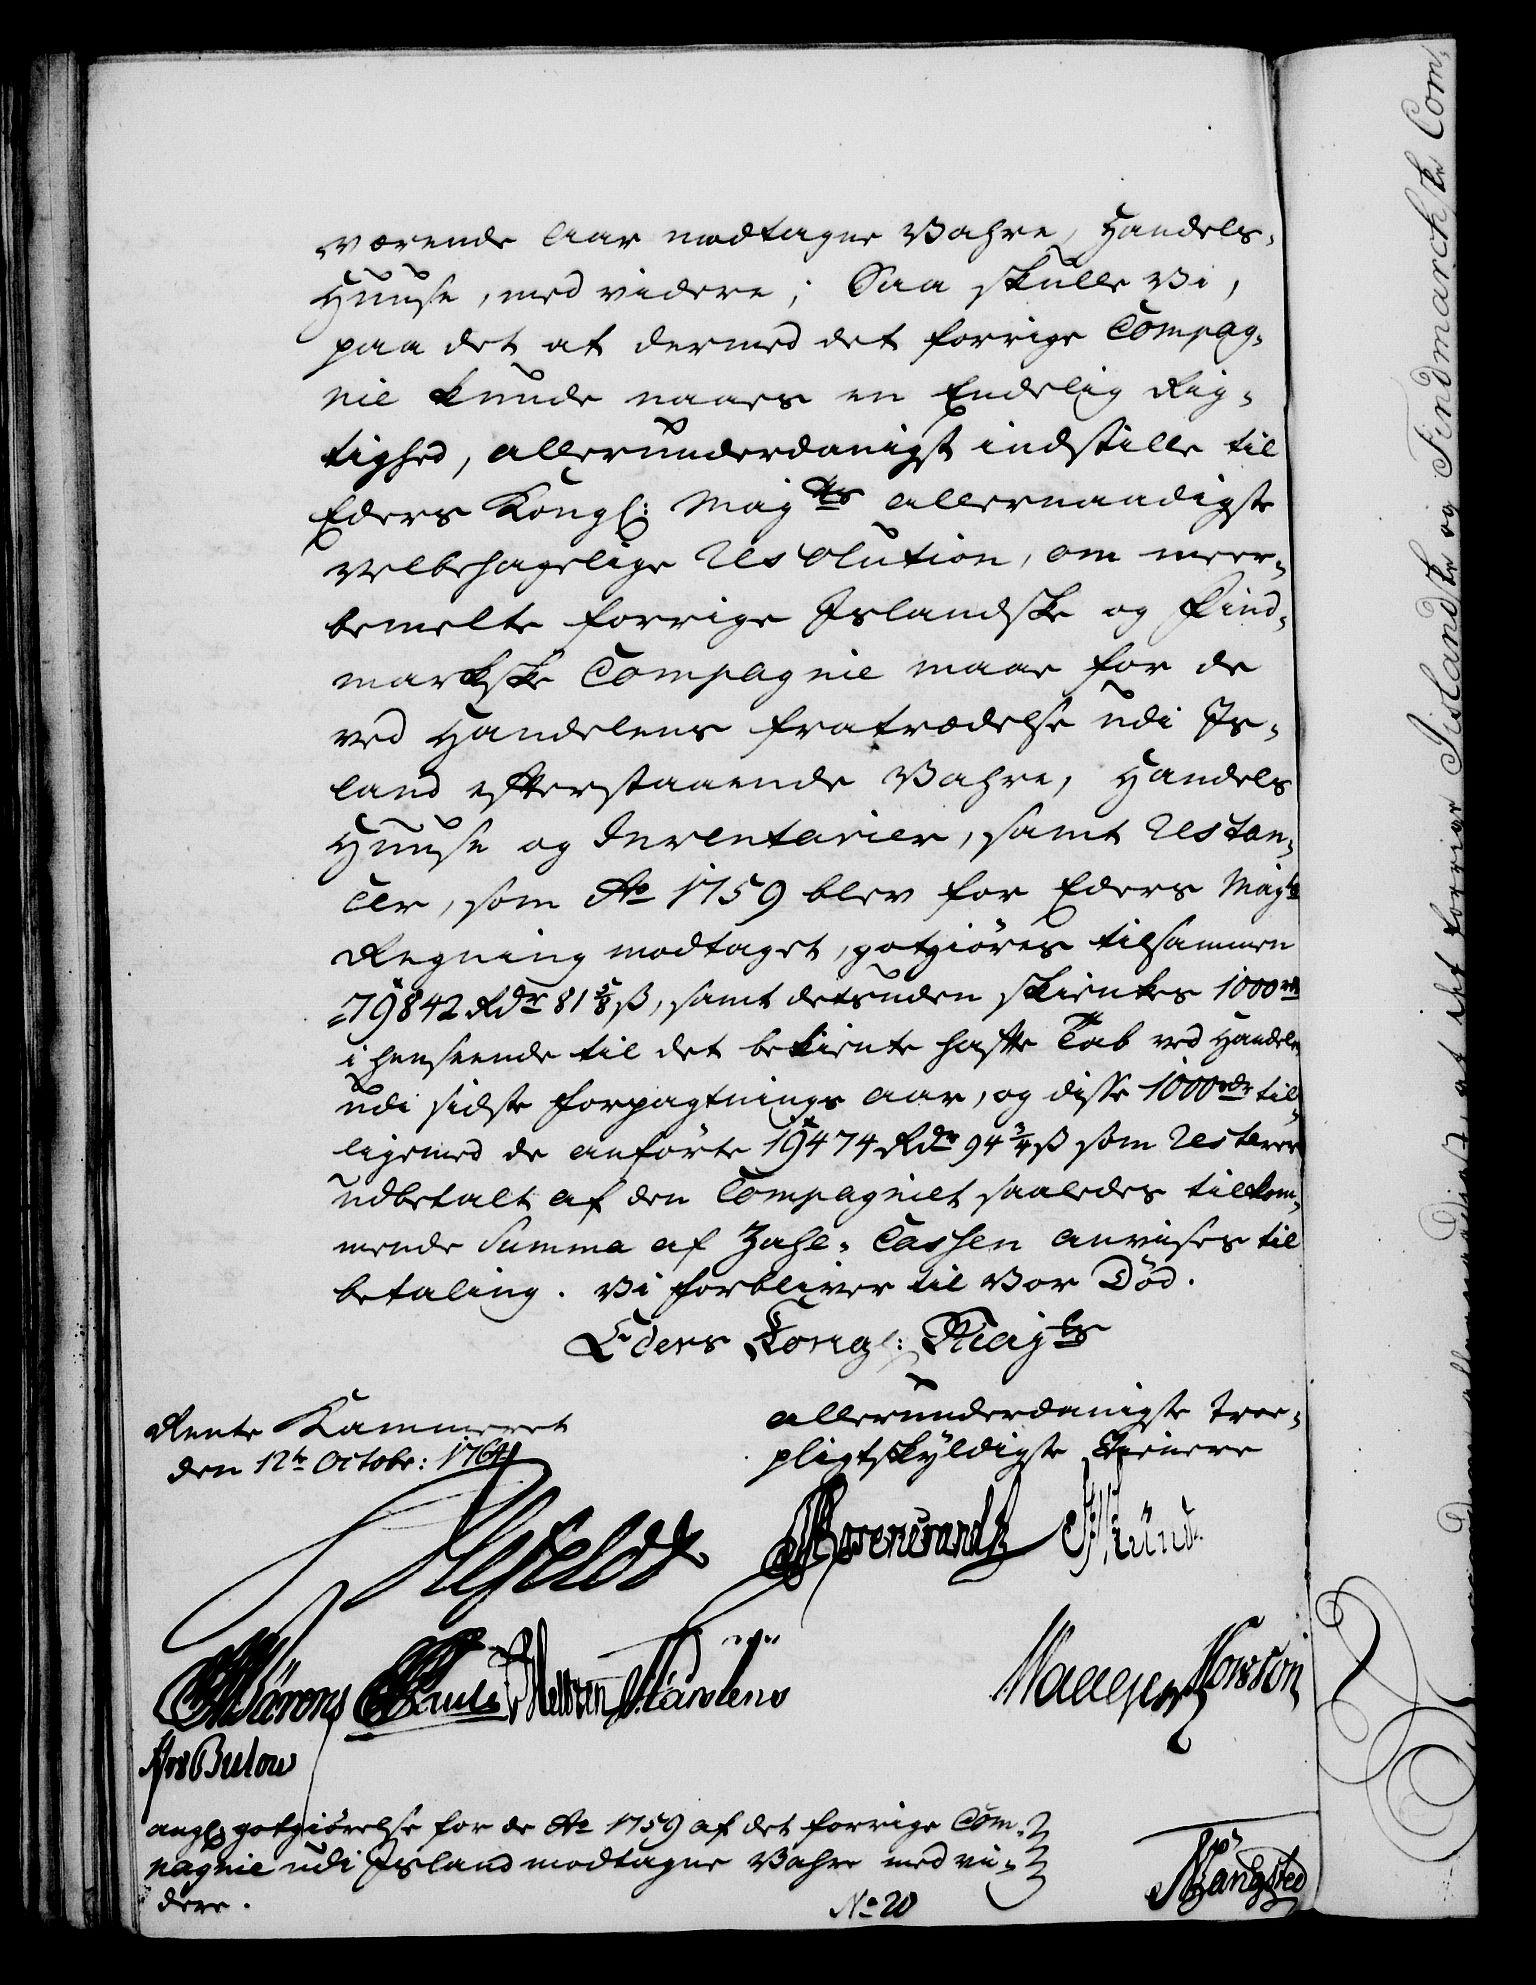 værende Aar modtagne Wahre, Handels-
Huuse, med videre; Saa skulle Vi,
paa det at dermed det forrige Compag-
nie kunde naaes en Endelig Rig-
tighed, allerunderdanigst indstille til
Eders Kongl: Mayts allernaadigste
velbehagelige Resolution, om meer-
bemelte forrige Islandske og Find-
markske Compagnie maae for de
ved Handelens fratrædelse udi Is-
land efterstaaende Wahre, Handels
Huuse og Inventarier, samt Restan-
cer, som Ao 1759 blev for Eders Mayts
Regning modtaget, godtgiöres tilsammen
79842 Rdr 81 5/8 ß, samt desuden skienkes 1000 rdr
i henseende til det bekiente hafte Tab ved Handelen
udi sidste forpagtnings Aar, og disse 1000 rdr til-
ligemed de anförte 19474 Rdr 94 3/4 ß som Resterer
udbetalt af den Compagniet saaledes tilkom-
mende Summa af Zahl-Cassen anvises til
betaling. Vi forbliver til Vor Död.
Eders Kongl: Mayts
Rente Kammeret
den 12te Octobr: 1764
allerunderdanigste troe-
pligtskÿldigste Tienere
Ahlefeldt
Rosencrandtz
Knuts
Meltzen
Bulow
angl godtgiörelse for de Ao 1759 af det forrige Com-
pagnie udi Island modtagne Wahre med vi-
dere.
No 20
det forrige Islandske og Findmarckske Com-